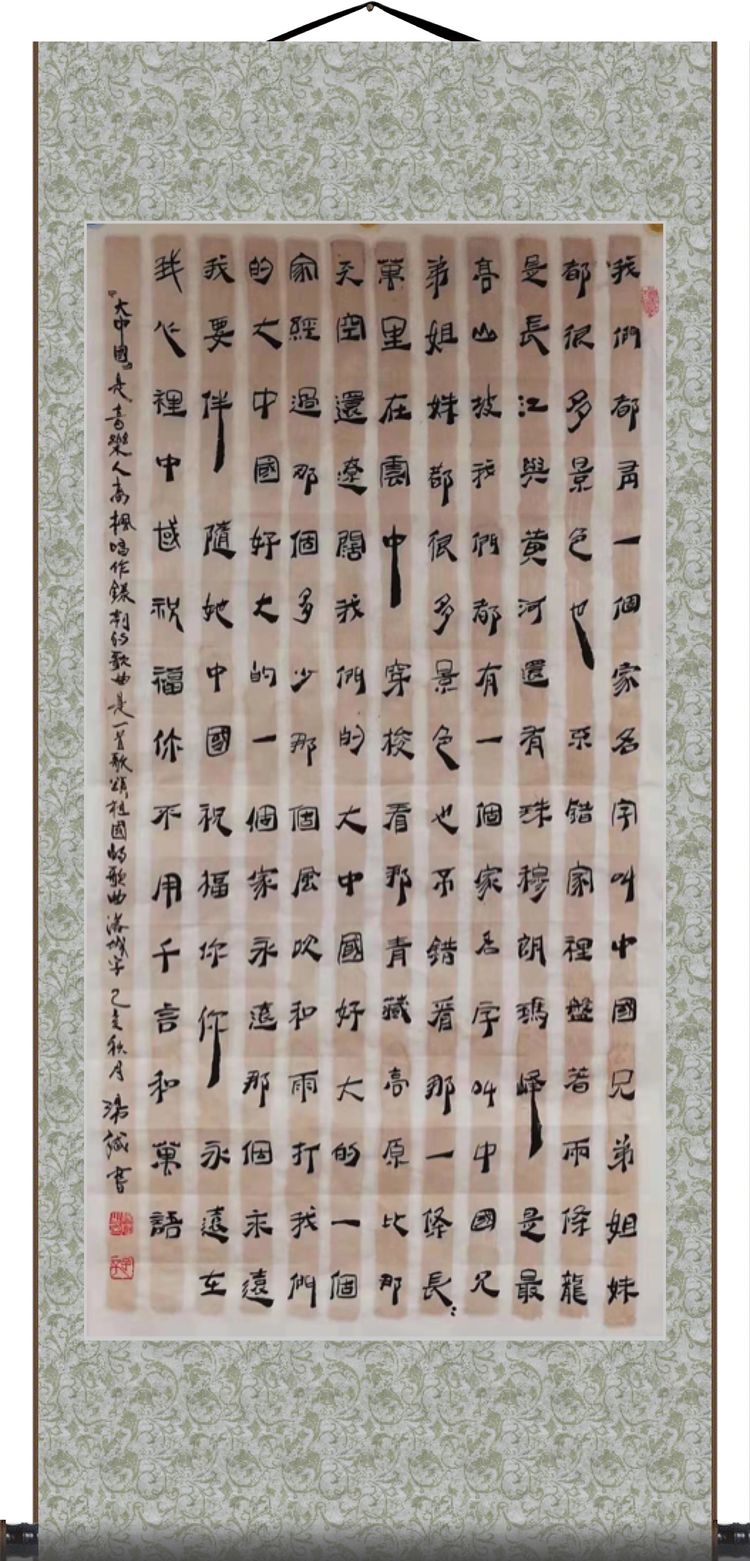 我們都有一個家名字叫中國兄弟姐妹
都很多景色也不錯家裡盤著兩條龍
是長江與黃河還有珠穆朗瑪峰是最
高山坡我們都有一個家名字叫中國兄
弟姐妹都很多景色也不錯看那一條長
萬里在雲中穿梭看那青藏高原比那
天空還遼闊我們的大中國好大的一個
家經過那個多少那個風吹和雨打我們
的大中國好大的一個家永遠那個永遠
我要伴隨她中國祝福你你永遠在
我心裡中域祝福你不用千言和萬語
『大中國』是音樂人高楓唱作錄制的歌曲是一首歌頌祖國的歌曲洛城 己亥秋月 書